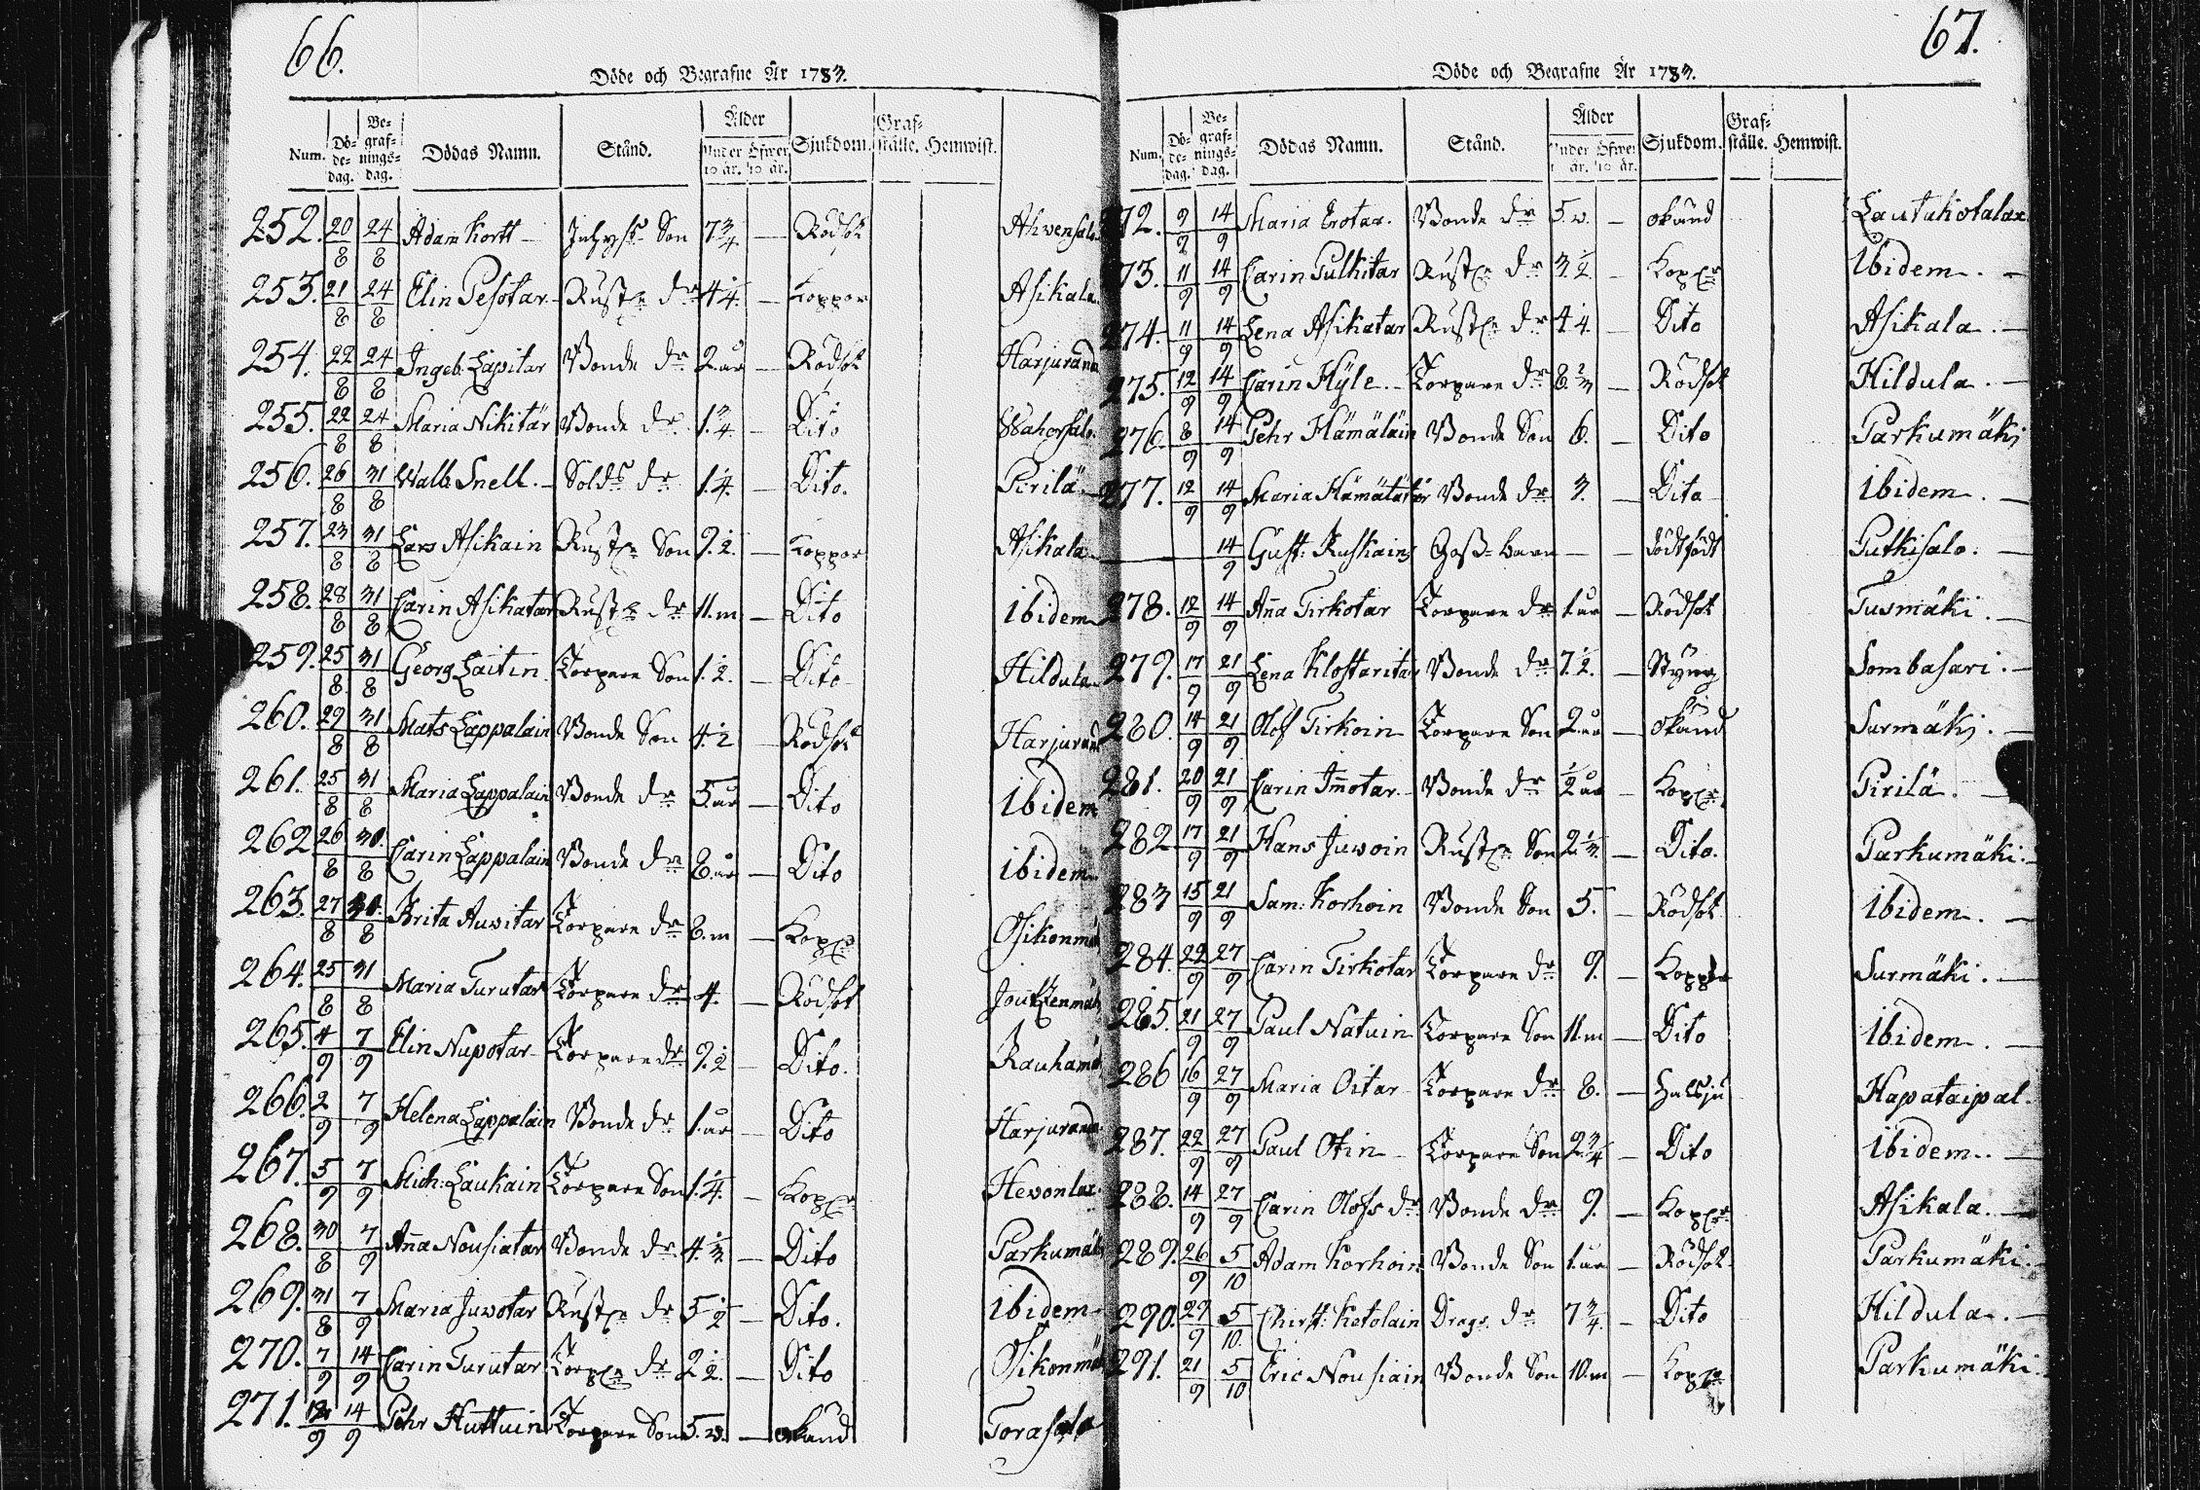 66.
Döde och Begrafne År 1783.
Num. Dö-de-dag. Be-graf-nings-dag. Dödas Namn. Stånd. Ålder Under 10 år. Öfwer 10 år. Sjukdom. Graf-ställe. Hemwist.
252. 20/8 24/8 Adam Kortt Inhys Son 7 3/4 — Rödsot Ahvensalo
253. 21/8 24/8 Elin Pesotar Rust dr 4 1/4 — Koppor Asikala
254. 22/8 24/8 Ingeb. Lapitar Bonde dr 2 år — Rödsot Harjurand
255. 22/8 24/8 Maria Nikitär Bonde dr 1 3/4 — Dito Wahersalo
256. 26/8 31/8 Walb. Snell Sold dr 1 1/4 — Dito. Pirilä
257. 23/8 31/8 Lars Asikain Rust Son 9 1/2 — Koppor Asikala
258. 28/8 31/8 Carin Asikatar Rust dr 11.m — Dito Ibidem
259. 25/8 31/8 Georg Laitin Torpare Son 1 1/2 — Dito Hildula
260. 29/8 31/8 Mats Lappalain Bonde Son 4 1/2 — Rödsot Harjurand
261. 25/8 31/8 Maria Lappalain Bonde dr 5 år — Dito Ibidem
262 26/8 30/8 Carin Lappalain Bonde dr 8 år — Dito Ibidem
263. 27/8 /8 Brita Auvitar Torpare dr 8.m — Kopper Osikonmä
264. 25/8 31/8 Maria Turutar Torpare dr 4. — Rödsot Joutzenmäk
265. 4/9 7/9 Elin Nupotar Torpare dr 9 1/2 — Dito. Rauhamä
266. 2/9 7/9 Helena Lappalain Bonde dr 1. år — Dito Harjurand
267. 5/9 7/9 Mich: Laukain Torpare Son 1 1/4 — Kopper Hevonlax
268. 30/8 7/9 Anna Nousiatar Bonde dr 4 1/3 — Dito Parkumäki
269. 31/8 7/9 Maria Juvotar Rust dr 5 1/2 — Dito. Ibidem
270. 7/9 14/9 Carin Turutar Torp dr 2 1/2 — Dito Osikonmä
271. 12/9 14/9 Pehr Huttuin Torpare Son 5.w. — okänd Torasalo
67.
Döde och Begrafne År 1783.
Num. Dö-de-dag. Be-graf-nings-dag. Dödas Namn. Stånd. Ålder Under 10 år. Öfwer 10 år. Sjukdom. Graf-ställe. Hemwist.
272. 9/9 14/9 Maria Erotar. Bonde dr 5.w. — okänd Lautakotalax
273. 11/9 14/9 Carin Pulkitar Rust dr 3 1/2 — Kopper Ibidem. —
274. 11/9 14/9 Lena Asikatar Rust dr 4 1/4 — Dito Asikala. —
275. 12/9 14/9 Carin Hyle Torpare dr 8 2/3 — Rödsot Hildula. —
276. 8/9 14/9 Pehr Hämäläin Bonde Son 6. — Dito Parkumäki
277. 12/9 14/9 Maria Hämälätär Bonde dr 3. — Dito Ibidem. —
— 14/9 Gust: Ruskains Goss-barn — — dödfödt Putkisalo. —
278. 12/9 14/9 Anna Tirkotar Torpare dr 1. år — Rödsot Tusmäki. —
279. 17/9 21/9 Lena Klostaritar Bonde dr 7 1/2 — Styng Sombasari. —
280. 14/9 21/9 Olof Tirkoin Torpare Son 2. år — okänd Surmäki. —
281. 20/9 21/9 Carin Immotar Bonde dr 1/2 år — Kopper Pirilä. —
282 17/9 21/9 Hans Juvoin Rust Son 2 1/3 — Dito. Parkumäki. —
283 15/9 21/9 Sam: Korhoin Bonde Son 5. — Rödsot Ibidem. —
284. 22/9 27/9 Carin Tirkotar Torpare dr 9. — Koppor Surmäki. —
285. 21/9 27/9 Paul Natuin Torpare Son 11.m — Dito Ibidem. —
286 16/9 27/9 Maria Oitar Torpare dr 8. — Halssju Hapataipal.
287. 22/9 27/9 Paul Otin Torpare Son 2 3/4 — Dito Ibidem. —
288. 14/9 27/9 Carin Olofs dr Bonde dr 9. — Kopper Asikala. —
289. 26/9 5/10 Adam Korhoin Bonde Son 1. år — Rödsot Parkumäki. —
290. 29/9 5/10 Christ: Ketolain Drag. dr 7 3/4 — Dito Hildula. —
291. 21/9 5/10 Eric Nousiain Bonde Son 10.m — Kopper Parkumäki.